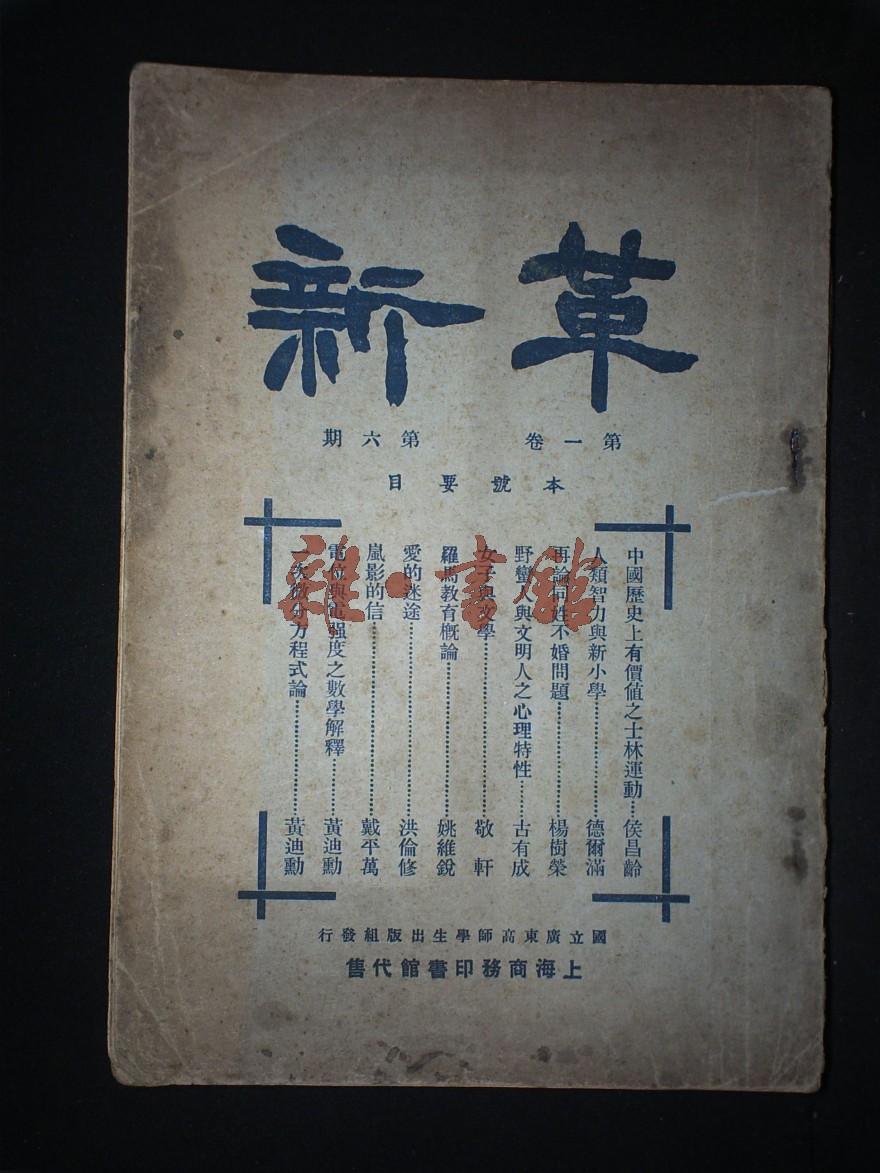 革新
第一卷 第六期
本號要目
中國歷史上有價値之士林運動…侯昌齡
人類智力與新小學…………德爾滿
再論同姓不婚問題…………楊樹榮
野蠻人與文明人之心理特性……古有成
女子與文學………………敬軒
羅馬教育槪論……………姚維銳
愛的迷途………………洪倫修
嵐影的信………………戴平萬
電位與電强度之數學解釋……黃迪勳
一次微分方程式論…………黃迪勳
國立廣東高師學生出版組發行
上海商務印書館代售
雜·書館